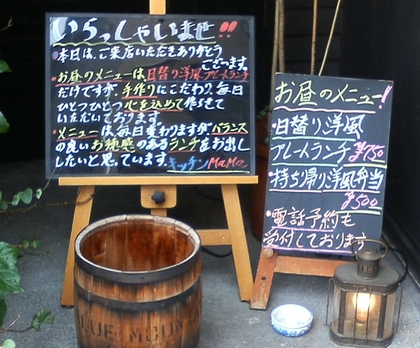 いらっしゃいませ!!
・本日は、ご来店いただきありがとう
ございます。
・お昼のメニューは日替り洋風プレートランチ
だけですが、手作りにこだわり、毎日
ひとつひとつ心を込めて作らせて
いただいております。
・メニューは毎日変わりますがバランス
の良いお穫感のあるランチをお出し
したいと思っています。キッチンMaMa
お昼のメニュー!
・日替り洋風
プレートランチ ¥750
・持ち帰り洋風弁当
¥500
・電話予約も
受付しております
BLUE MOUN